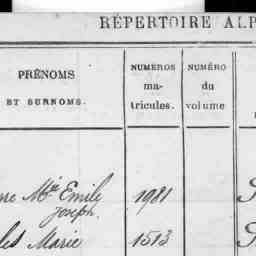 RÉPERTOIRE ALP
PRÉNOMS
ET SURNOMS.
NUMEROS
ma-
tricules.
NUMÉRO
du
volume
Mie Emily 1981
Joseph
Marie 1513